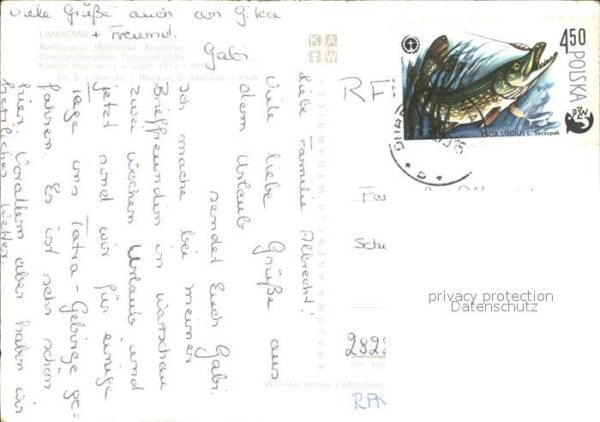 viele Grüße auch an Gitta
+ Freund.
Gabi.
LIMANOWA
Restauracja „Mysliwska”. Krajobraz
Centrum handlowe. Fragment parku
Kościół zbudowany w latach 1912 - 1918
KAW
RF
4.50
POLSKA
ESOX LUCIUS L. Szczupak
PZW
Liebe Familie Albrecht!
Viele liebe Grüße aus
dem Urlaub
sendet Euch Gabi.
Ich mache bei meiner
Brieffreundin in Warschau
zwei Wochen Urlaub und
jetzt sind wir für einige
Tage ins Tatra-Gebirge ge-
fahren. Es ist sehr schön
hier. Vorallem aber haben wir
herrliches Wetter.
KRAJOWA AGENCJA WYDAWNICZA
Fa
Sch
282
Wszelkie prawa zastrzeżone
privacy protection
Datenschutz